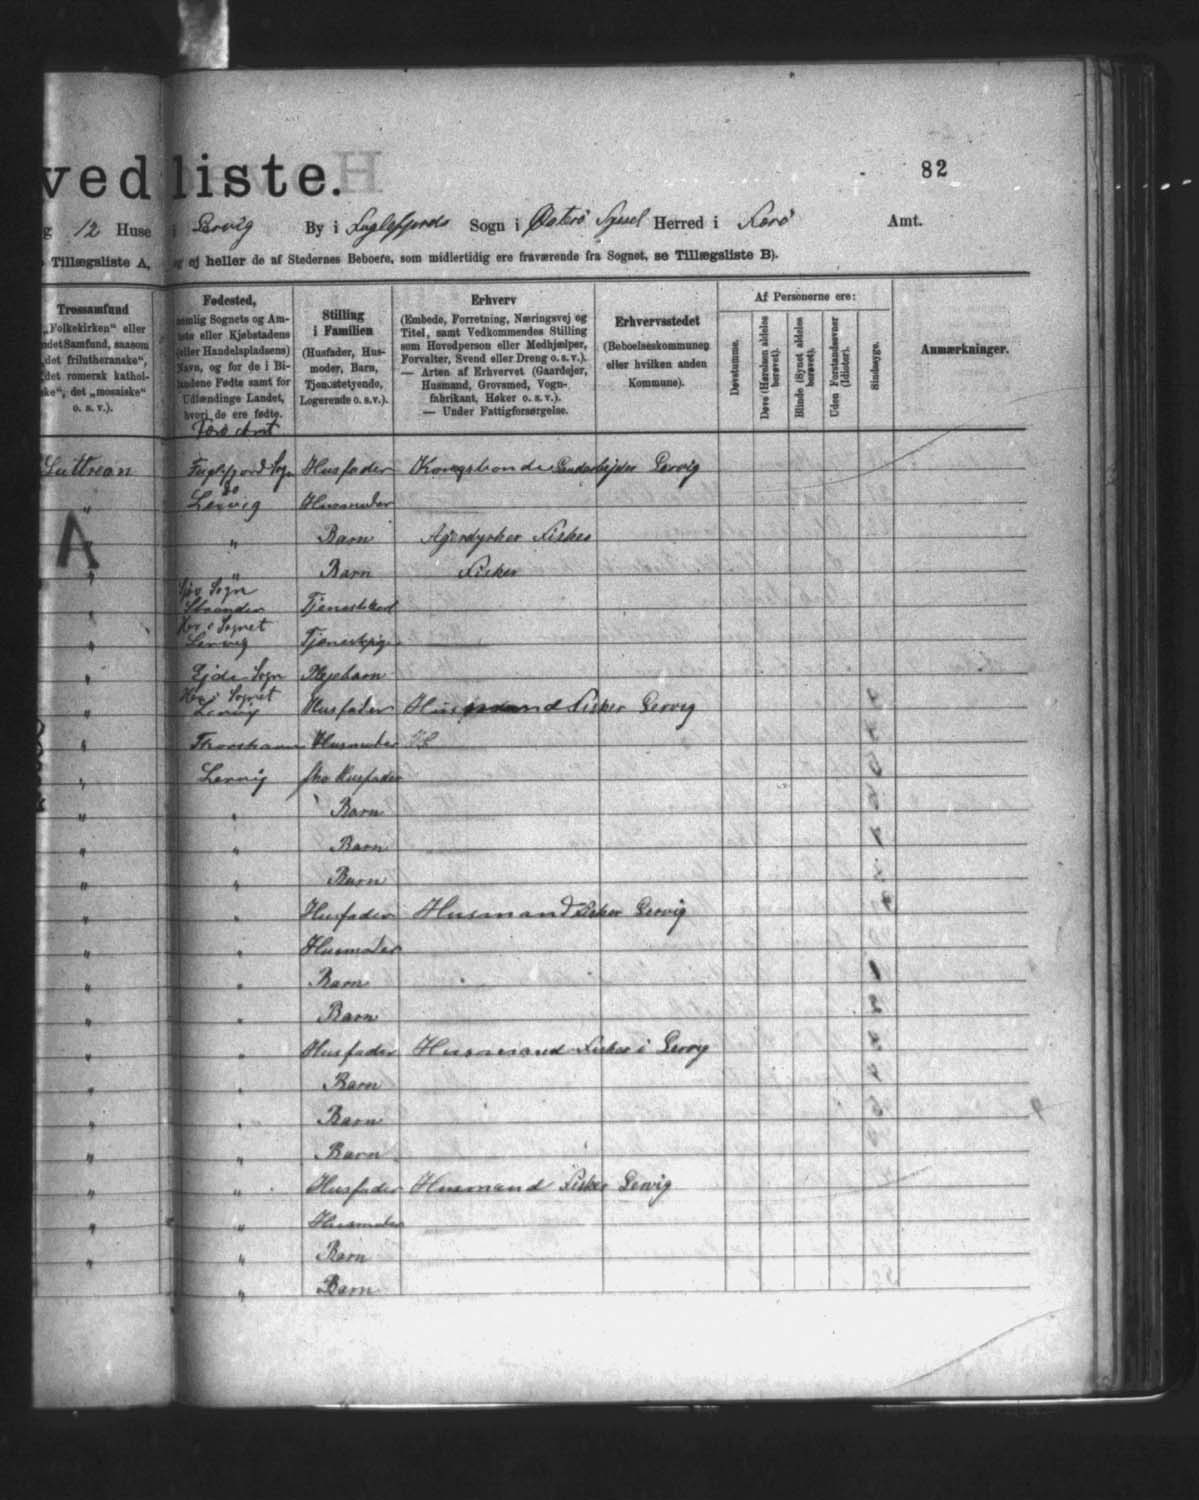 vedliste.
82
g 12 Huse i Lervig By i Fuglefjords Sogn i Østerø Syssel Herred i Færø Amt.
Tillægsliste A, og ej heller de af Stedernes Beboere, som midlertidig ere fraværende fra Sognet, se Tillægsliste B).
Trossamfund
„Folkekirken“ eller
andet Samfund, saasom
„det frilutheranske“,
„det romersk kathol-
ske“, det „mosaiske“
o. s. v.).
Fødested,
nemlig Sognets og Am-
tets eller Kjøbstadens
(eller Handelspladsens)
Navn, og for de i Bi-
landene Fødte samt for
Udlændinge Landet,
hvori de ere fødte.
Stilling
i Familien
(Husfader, Hus-
moder, Barn,
Tjenestetyende,
Logerende o. s. v.).
Erhverv
(Embede, Forretning, Næringsvej og
Titel, samt Vedkommendes Stilling
som Hovedperson eller Medhjælper,
Forvalter, Svend eller Dreng o. s. v.).
— Arten af Erhvervet (Gaardejer,
Husmand, Grovsmed, Vogn-
fabrikant, Høker o. s. v.).
— Under Fattigforsørgelse.
Erhvervsstedet
(Beboelseskommunen
eller hvilken anden
Kommune).
Af Personerne ere:
Døvstumme.
Døve (Hørelsen aldeles berøvet).
Blinde (Synet aldeles berøvet).
Uden Forstandsevner (Idioter).
Sindssyge.
Anmærkninger.
Færø Amt
Luttrean Fuglefjord Sogn Husfader Kongsbonde Lervig
" Lervig Husmoder
A " " Barn Agerdyrker Fisker
" " Barn Fisker
Sogn
" Strander Tjenestekarl
Her i Sognet
" Lervig Tjenestepige
" Ejde Sogn Plejebarn
Her i Sognet
" Lervig Husfader Husmand Fisker Lervig
" Thorshavn Husmoder
" Lervig Husfader
" " Barn
" " Barn
" " Barn
" " Husfader Husmand Fisker Lervig
" " Husmoder
" " Barn
" " Barn
" " Husfader Husmand Fisker i Lervig
" " Barn
" " Barn
" " Barn
" " Husfader Husmand Fisker Lervig
" " Husmoder
" " Barn
" Barn